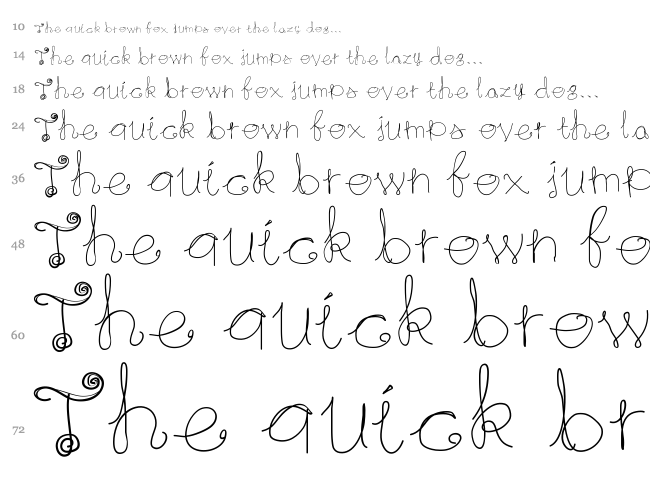 10 The quick brown fox jumps over the lazy dog...
14 The quick brown fox jumps over the lazy dog...
18 The quick brown fox jumps over the lazy dog...
24 The quick brown fox jumps over the la
36 The quick brown fox jump
48 The quick brown fo
60 The quick brow
72 The quick br